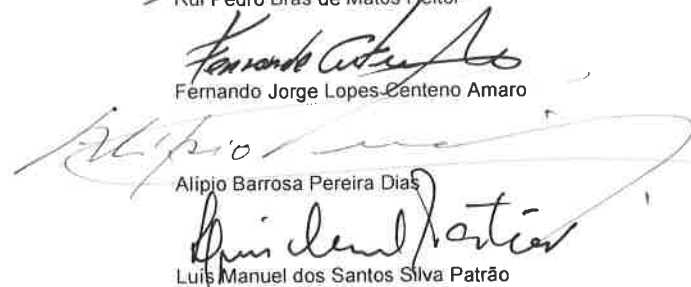 Rui Pedro Brás de Matos Heitor
Fernando Jorge Lopes Centeno Amaro
Alípio
Alípio Barrosa Pereira Dias
Luis Manuel dos Santos Silva Patrão